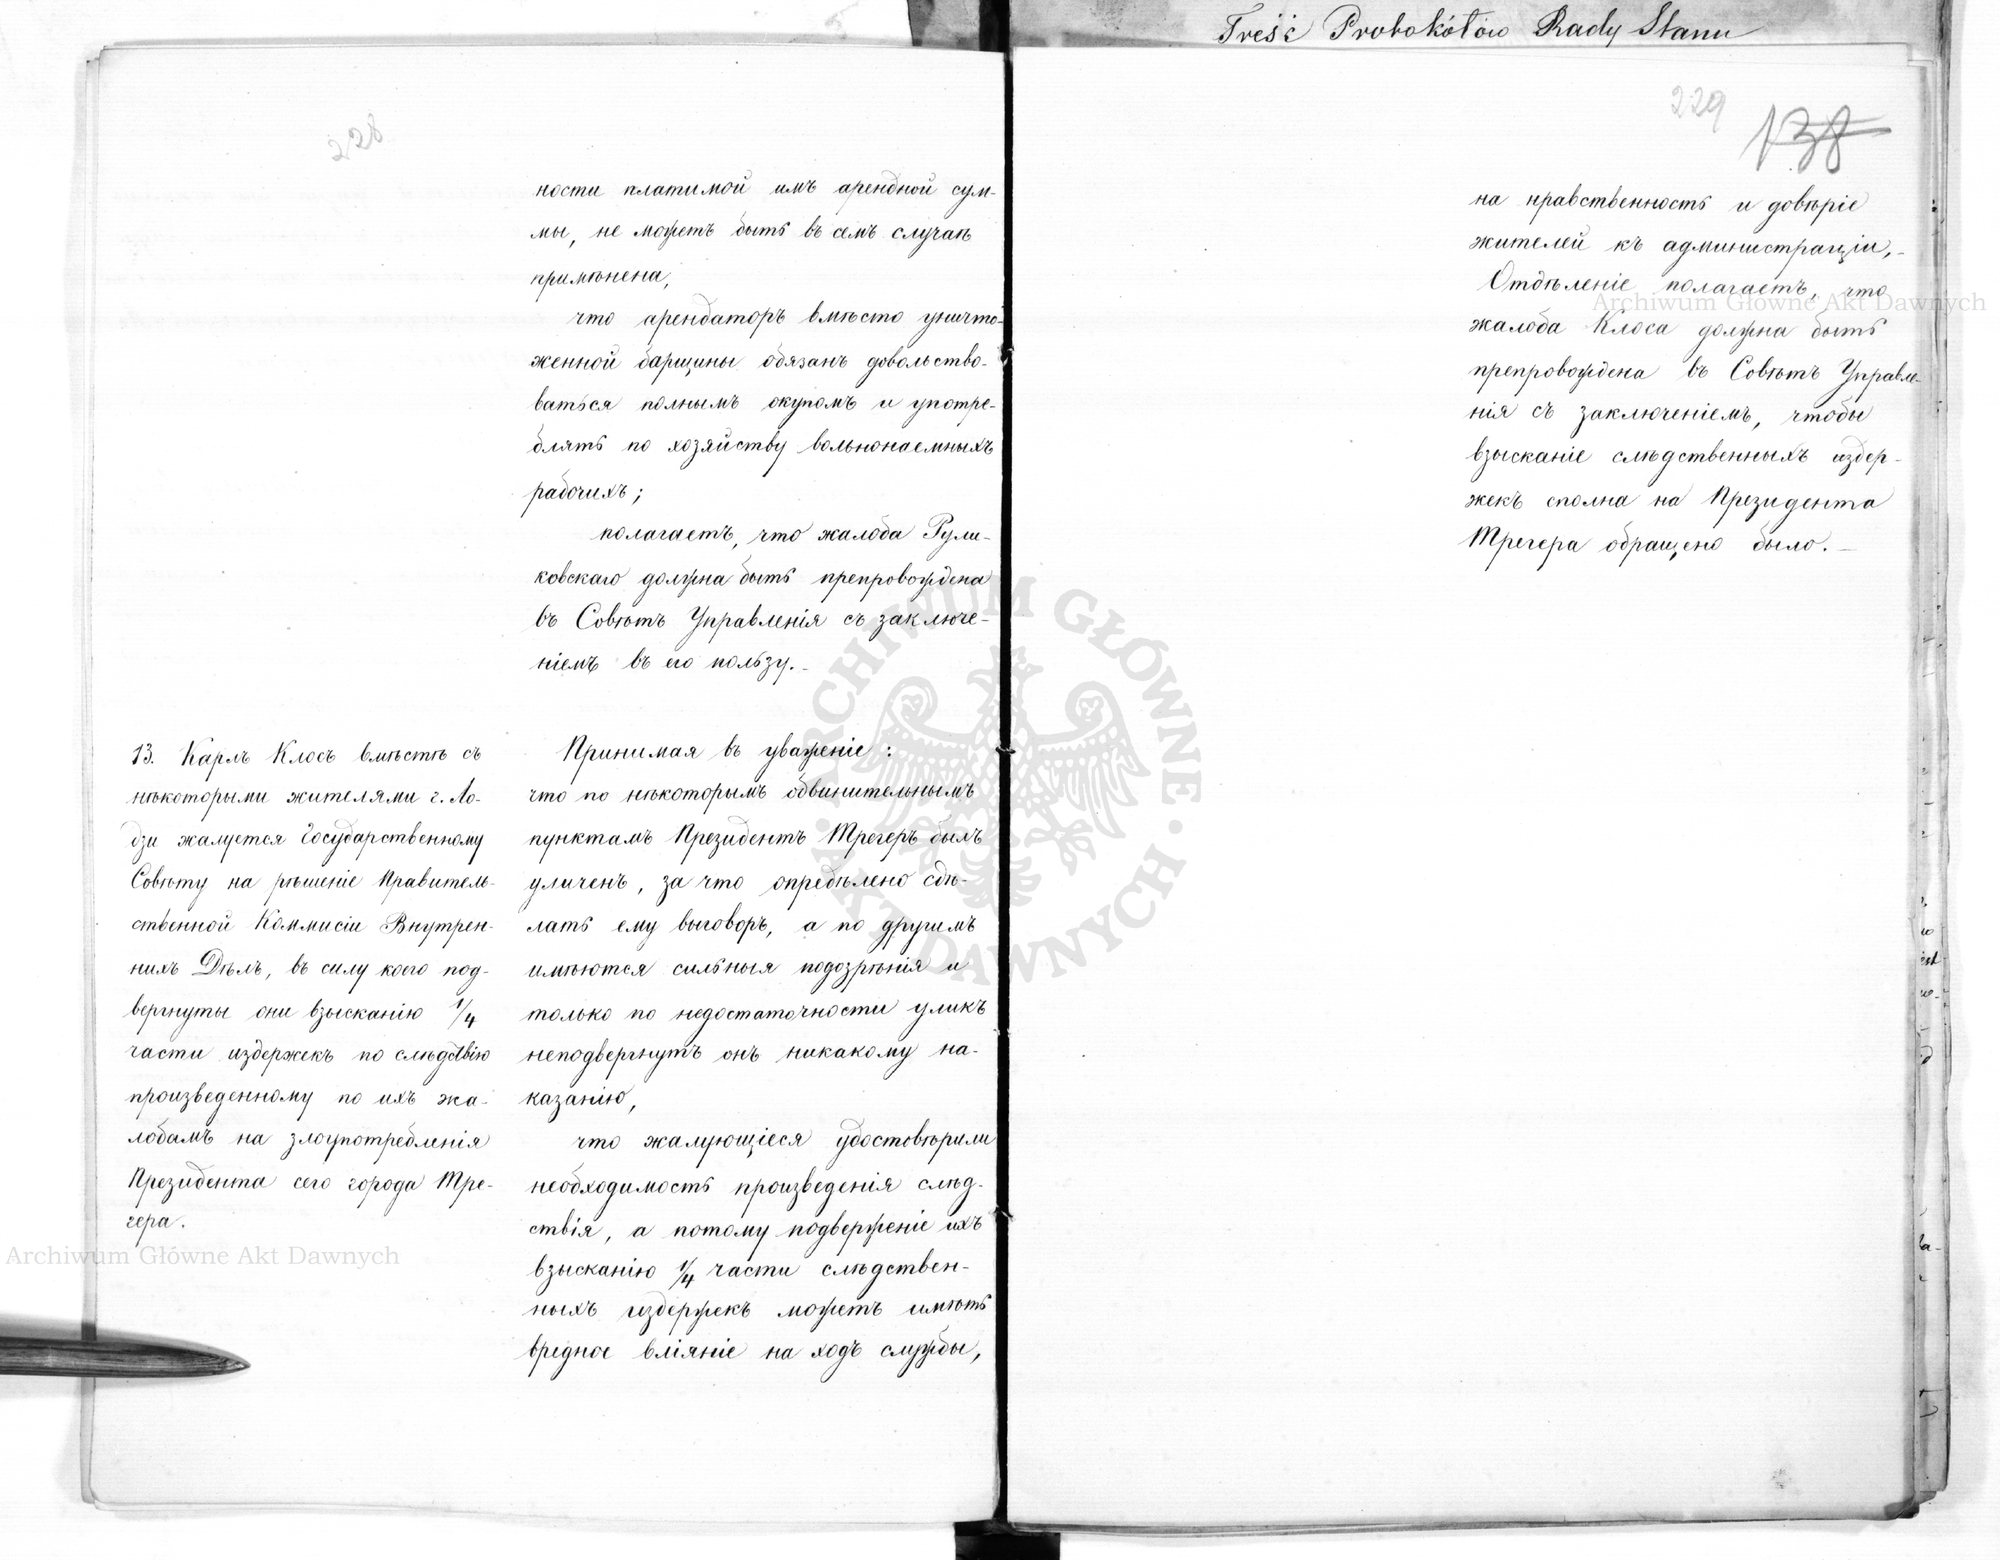 Treść Protokółów Rady Stanu
228
ности платимой имъ арендной сум-
мы, не можетъ быть въ семъ случаѣ
примѣнена,
что арендаторъ вмѣсто уничто-
женной барщины обязанъ довольство-
ваться полнымъ окупомъ и употре-
блять по хозяйству вольнонаемныхъ
рабочихъ;
полагаетъ, что жалоба Рули-
ковскаго должна быть препровождена
въ Совѣтъ Управленія съ заключе-
ніемъ въ его пользу.-
13. Карлъ Клосъ вмѣстѣ съ
нѣкоторыми жителями г. Ло-
дзи жалуется Государственному
Совѣту на рѣшеніе Правитель-
ственной Коммисіи Внутрен-
нихъ Дѣлъ, въ силу коего под-
вергнуты они взысканію 1/4
части издержекъ по слѣдствію
произведенному по ихъ жа-
лобамъ на злоупотребленія
Президента сего города Тре-
гера.
Принимая въ уваженіе:
что по нѣкоторымъ обвинительнымъ
пунктамъ Президентъ Трегеръ былъ
уличенъ, за что опредѣлено сдѣ-
лать ему выговоръ, а по другимъ
имѣются сильныя подозрѣнія и
только по недостаточности уликъ
неподвергнутъ онъ никакому на-
казанію,
что жалующіеся удостовѣрили
необходимость произведенія слѣд-
ствія, а потому подверженіе ихъ
взысканію 1/4 части слѣдствен-
ныхъ издержекъ можетъ имѣть
вредное вліяніе на ходъ службы,
229
138
на нравственность и довѣріе
жителей къ администраціи,-
Отдѣленіе полагаетъ, что
жалоба Клоса должна быть
препровождена въ Совѣтъ Управле-
нія съ заключеніемъ, чтобы
взысканіе слѣдственныхъ издер-
жекъ сполна на Президента
Трегера обращено было.-
Archiwum Główne Akt Dawnych
Archiwum Główne Akt Dawnych
ARCHIWUM GŁÓWNE · AKT DAWNYCH ·